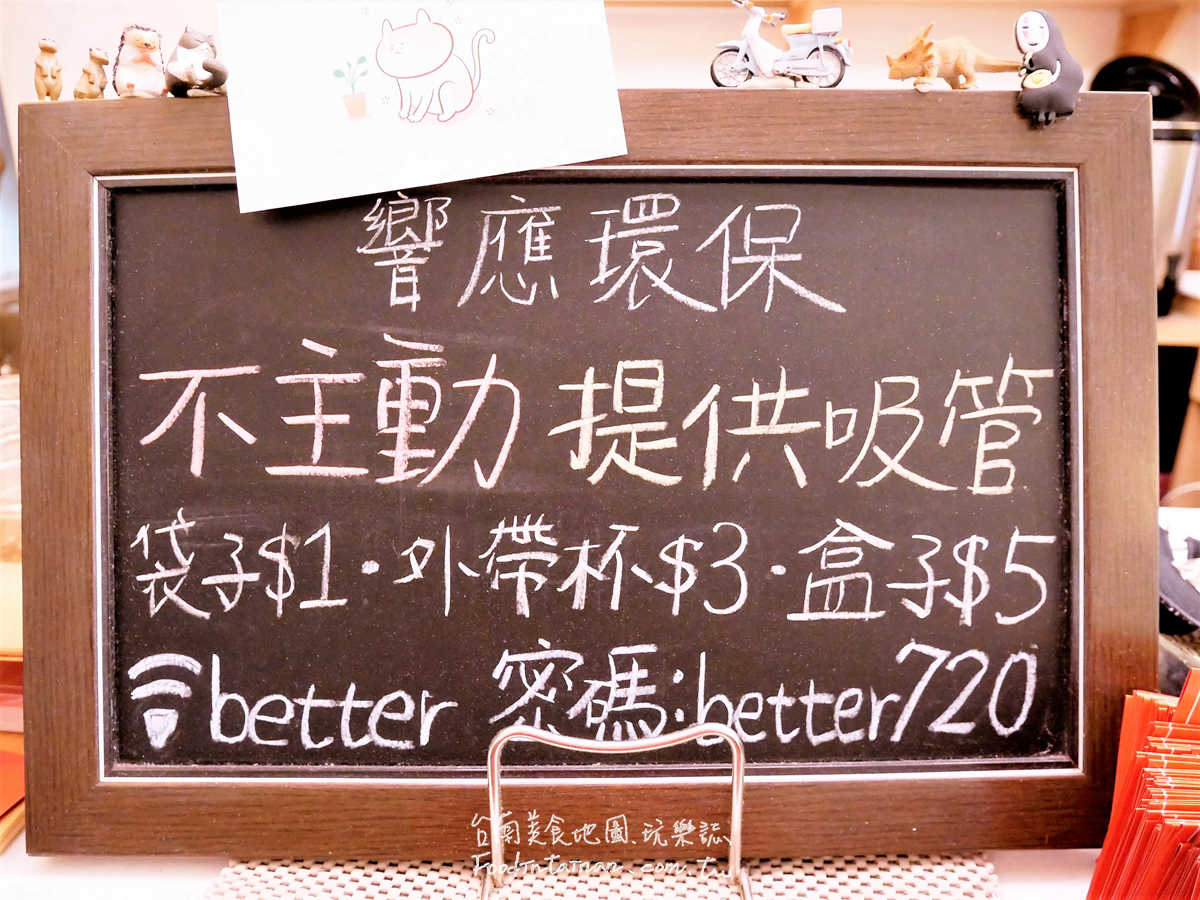 響應環保
不主動 提供吸管
袋子$1·外帶杯$3·盒子$5
better 密碼:better720
台南美食地圖.玩樂誌
FoodInTainan.com.tw